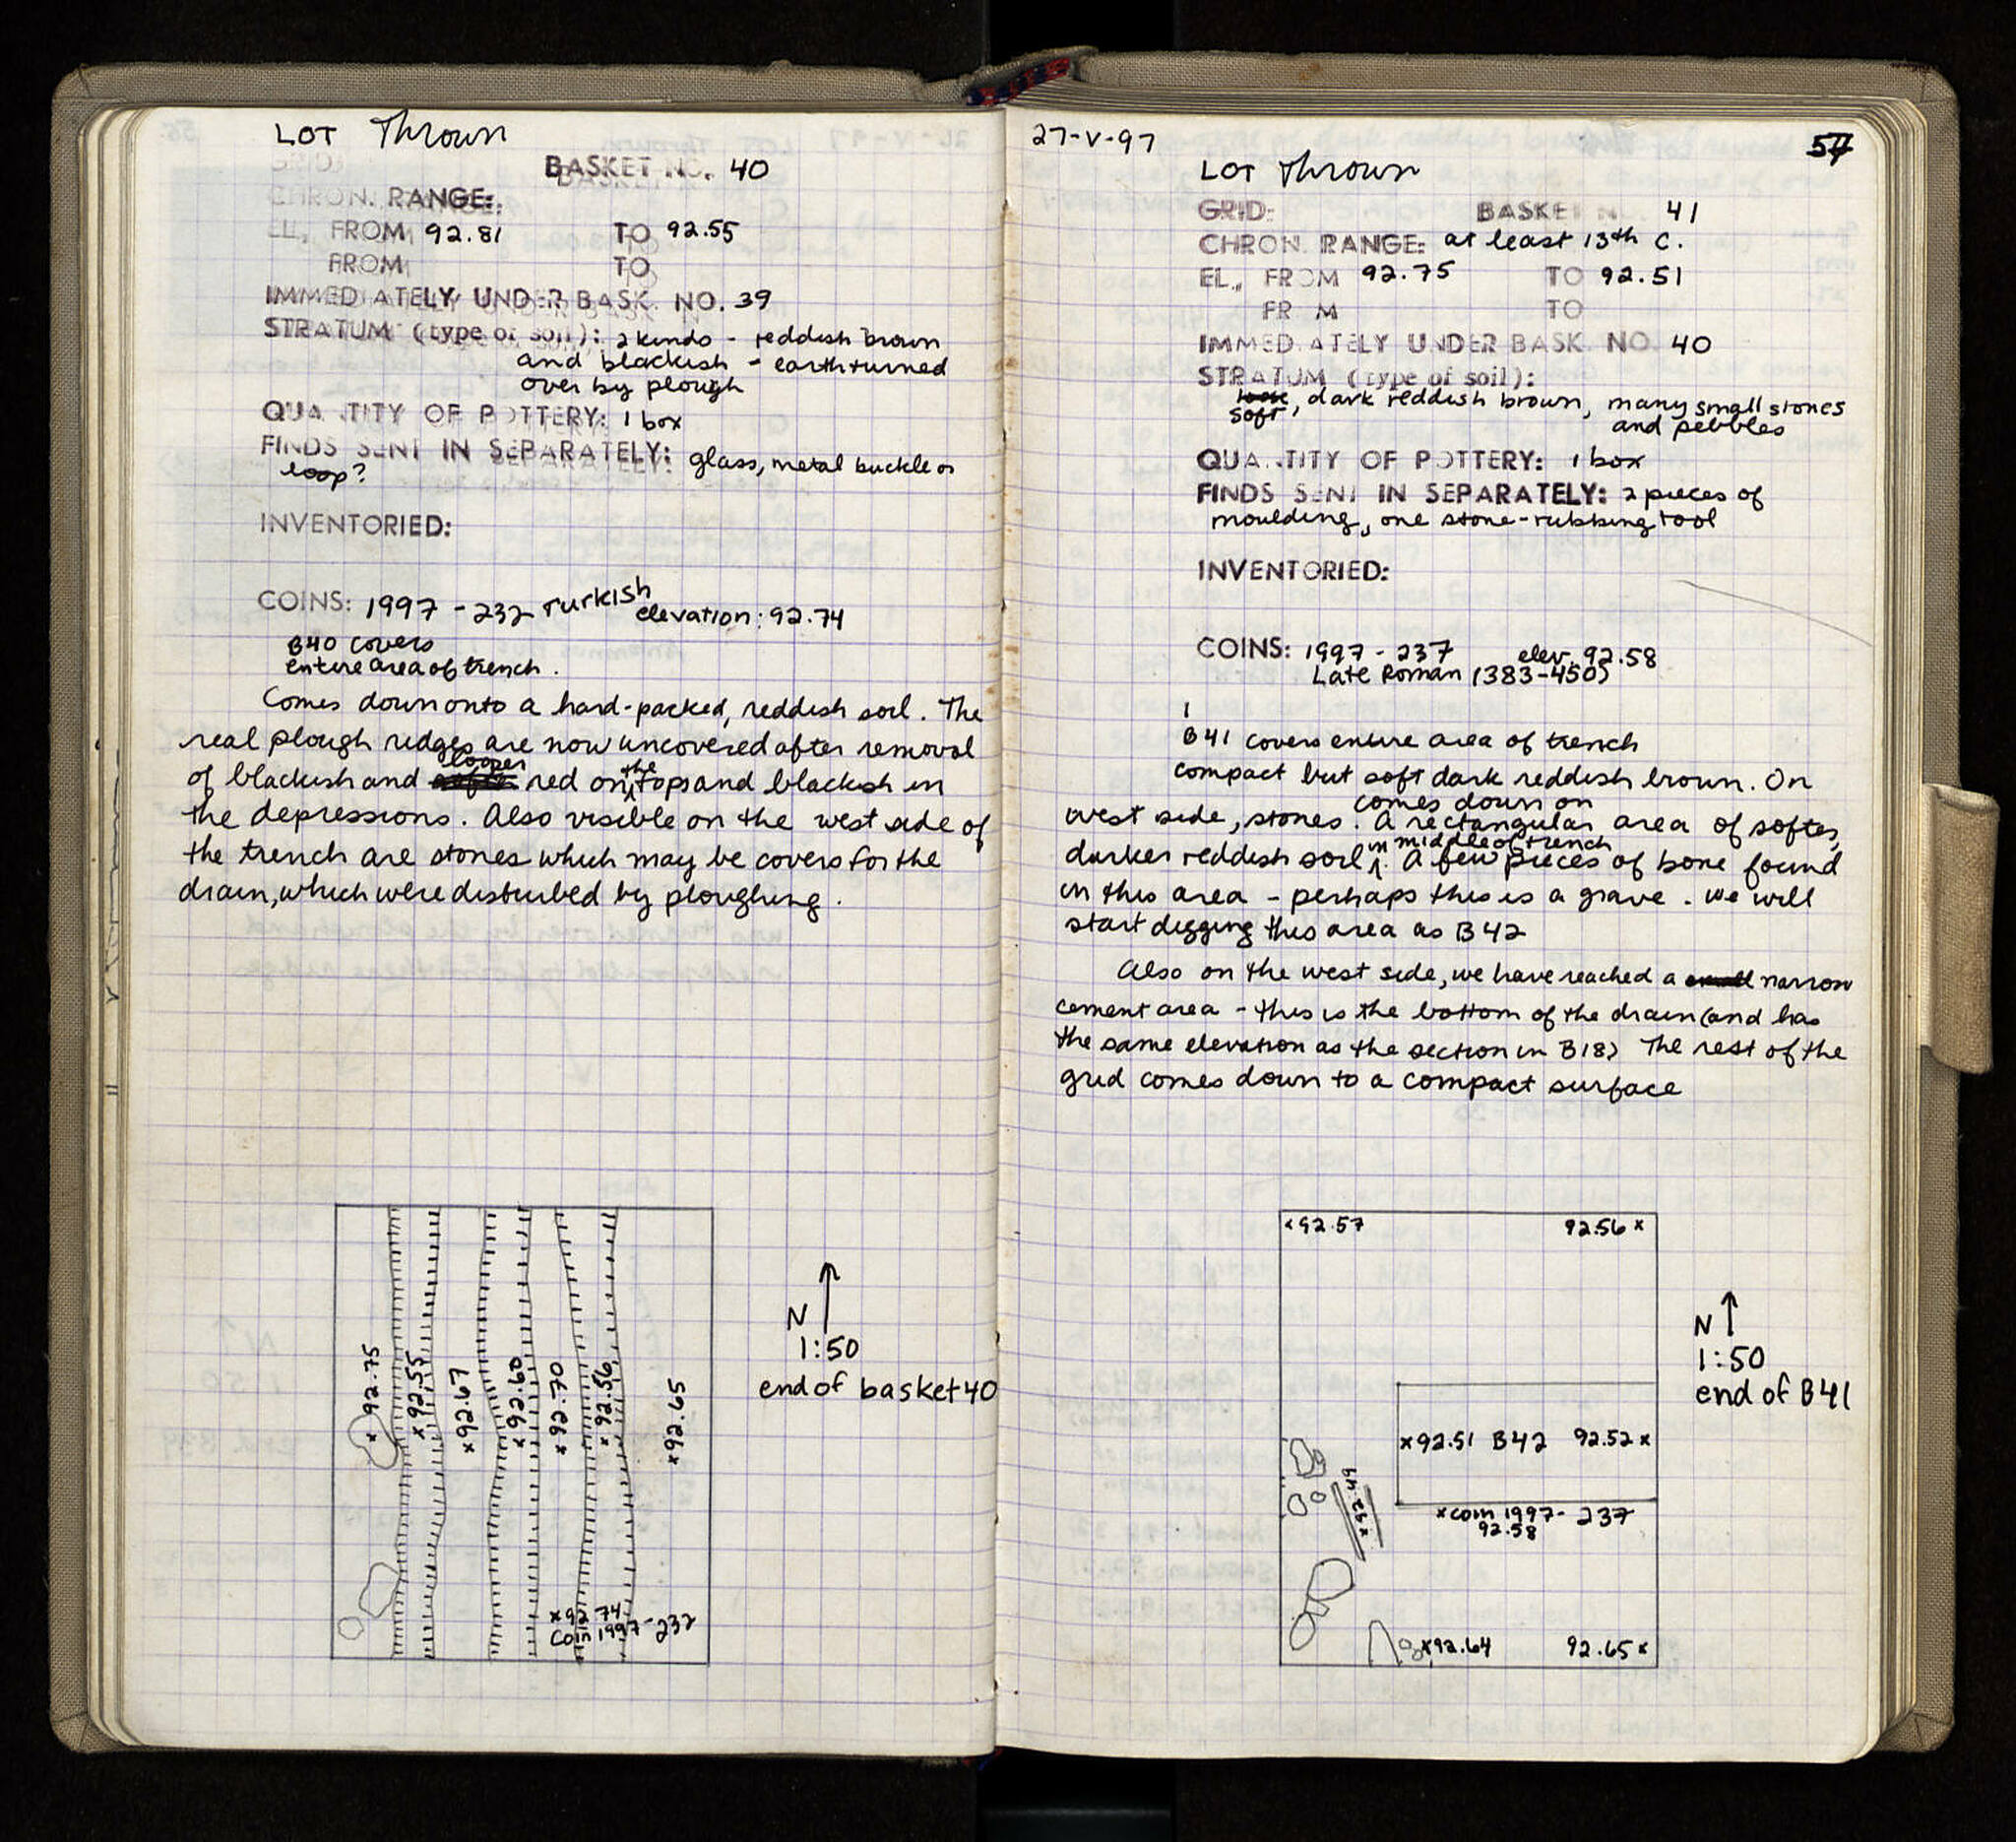 LOT Thrown
BASKET NO. 40
CHRON. RANGE:
EL., FROM 92.81 TO 92.55
FROM TO
IMMEDIATELY UNDER BASK. NO. 39
STRATUM (type of soil): 2 kinds - reddish brown
and blackish - earth turned
over by plough
QUANTITY OF POTTERY: 1 box
FINDS SENT IN SEPARATELY: glass, metal buckle or
loop?
INVENTORIED:
COINS: 1997 - 232 Turkish elevation: 92.74
B40 covers
entire area of trench.
Comes down onto a hard-packed, reddish soil. The
real plough ridges are now uncovered after removal
looser
of blackish and red on the tops and blackish in
the depressions. Also visible on the west side of
the trench are stones which may be covers for the
drain, which were disturbed by ploughing.
x 92.75
x 92.55
x 92.67
x 92.60
x 92.70
x 92.56
x 92.65
x 92.74
Coin 1997-232
N
1:50
end of basket 40
27-V-97
57
LOT Thrown
GRID: BASKET NO. 41
CHRON. RANGE: at least 13th C.
EL., FROM 92.75 TO 92.51
FROM TO
IMMEDIATELY UNDER BASK. NO. 40
STRATUM (type of soil):
loose
soft, dark reddish brown, many small stones
and pebbles
QUANTITY OF POTTERY: 1 box
FINDS SENT IN SEPARATELY: 2 pieces of
moulding, one stone-rubbing tool
INVENTORIED:
COINS: 1997 - 237 elev. 92.58
Late Roman (383-450)
B41 covers entire area of trench
compact but soft dark reddish brown. On
comes down on
west side, stones. A rectangular area of softer,
in middle of trench
darker reddish soil. A few pieces of bone found
in this area - perhaps this is a grave. We will
start digging this area as B42
Also on the west side, we have reached a small narrow
cement area - this is the bottom of the drain (and has
the same elevation as the section in B18) The rest of the
grid comes down to a compact surface
x 92.57 92.56 x
x 92.51 B42 92.52 x
x 92.49
x coin 1997- 237
92.58
x 92.64 92.65 x
N
1:50
end of B41